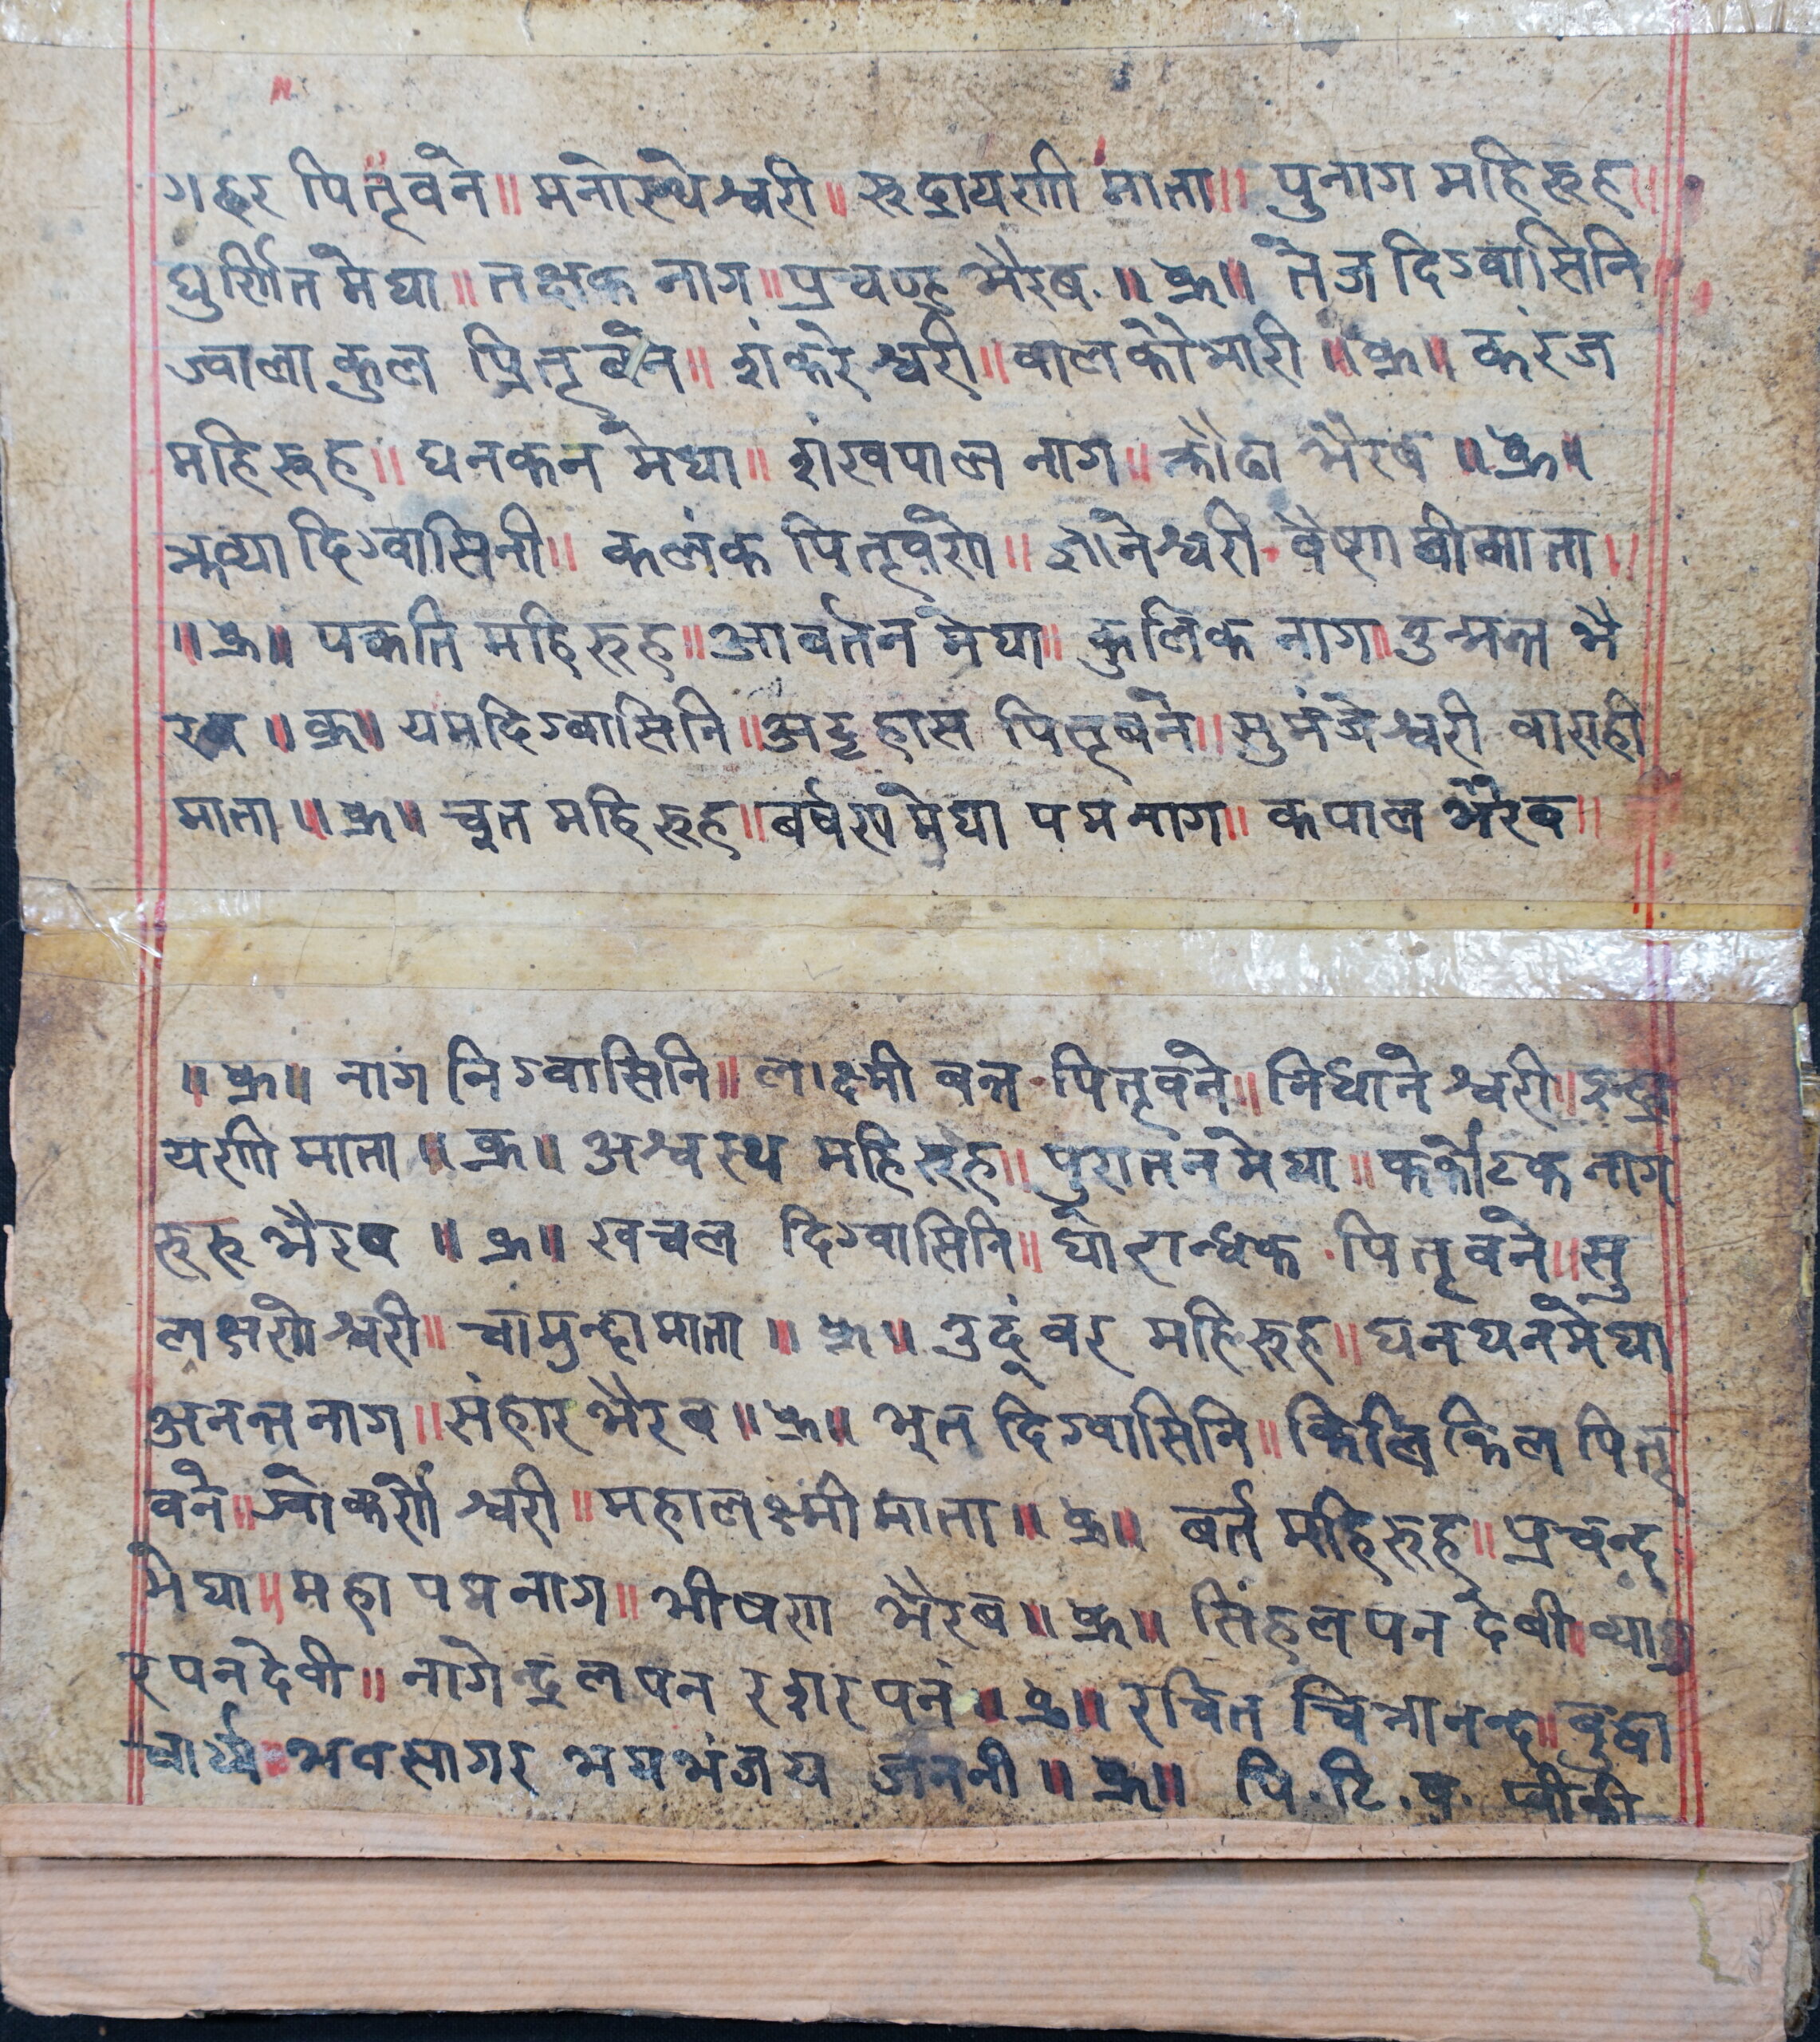 गह्वर पितृवने॥ मनोस्थेश्वरी॥ रूद्रायणी माता॥ पुनाग महिरूह॥
घुर्णित मेघा॥ तक्षक नाग॥ प्रचण्ड भैरव ॥ क्र॥ तेज दिग्वासिनि
ज्वाला कुल पितृवने॥ शंकरेश्वरी॥ बालकोमारी ॥ क्र॥ करंज
महिरूह॥ घनकन मेघा॥ शंखपाल नाग॥ क्रोढा भैरव ॥ क्र॥
क्रव्या दिग्वासिनी॥ कलंक पितृवणे॥ ज्ञानेश्वरी वैष्णवी माता॥
॥ क्र॥ पकति महिरूह॥ आवर्तन मेघा॥ कुलिक नाग॥ उन्मत्त भै
रव ॥ क्र॥ यमदिग्वासिनि॥ अट्टहास पितृवने॥ सुमंजेश्वरी वाराही
माता ॥ क्र॥ चुत महिरूह॥ बर्षण मेघा पद्म नाग॥ कपाल भैरव॥
॥ क्र॥ नाग निग्वासिनि॥ लाक्ष्मी बन पितृवने॥ निधानेश्वरी॥ इन्द्रा
यणी माता ॥ क्र॥ अश्वस्थ महिरूह॥ पुरातन मेघा॥ कर्कोटक नाग
रूरू भैरव ॥ क्र॥ खचल दिग्वासिनि॥ घोरान्धक पितृवने॥ सु
लक्षणेश्वरी॥ चामुन्दा माता ॥ क्र॥ उदुंबर महिरूह॥ घनघनमेघा
अनन्त नाग॥ संहार भैरव ॥ क्र॥ भूत दिग्वासिनि॥ किलि किल पितृ
वने॥ श्वरी॥ महालक्ष्मी माता ॥ क्र॥ बर्त महिरूह॥ प्रचन्द
मेघा॥ महा पद्म नाग॥ भीषण भैरव ॥ क्र॥ सिंहलपन देवी॥ व्याघ्र
रपन देवी॥ नागेन्द्रलपन ॥ क्र॥ रचित चित्रानन्द॥ बुद्धा
चार्य्य भवसागर भयभंजय जननी ॥ क्र॥ पि. टि. ब.